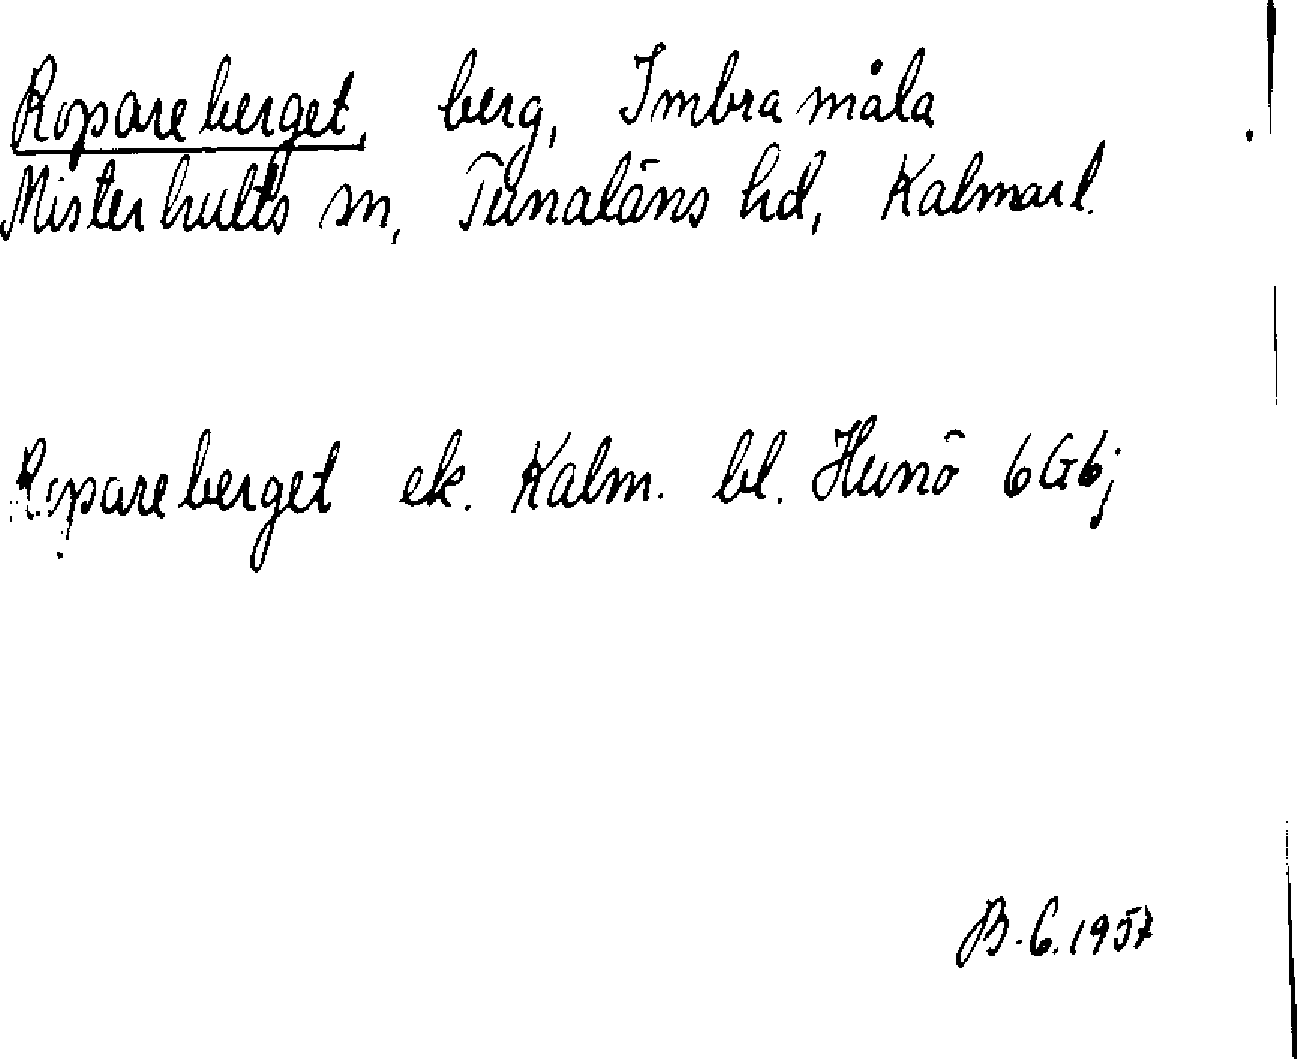 Ropareberget, berg, Imbramåla
Misterhults sn, Tunaläns hd, Kalmarl.
Ropareberget ek. Kalm. bl. Hunö 6G6j
B.G.1957